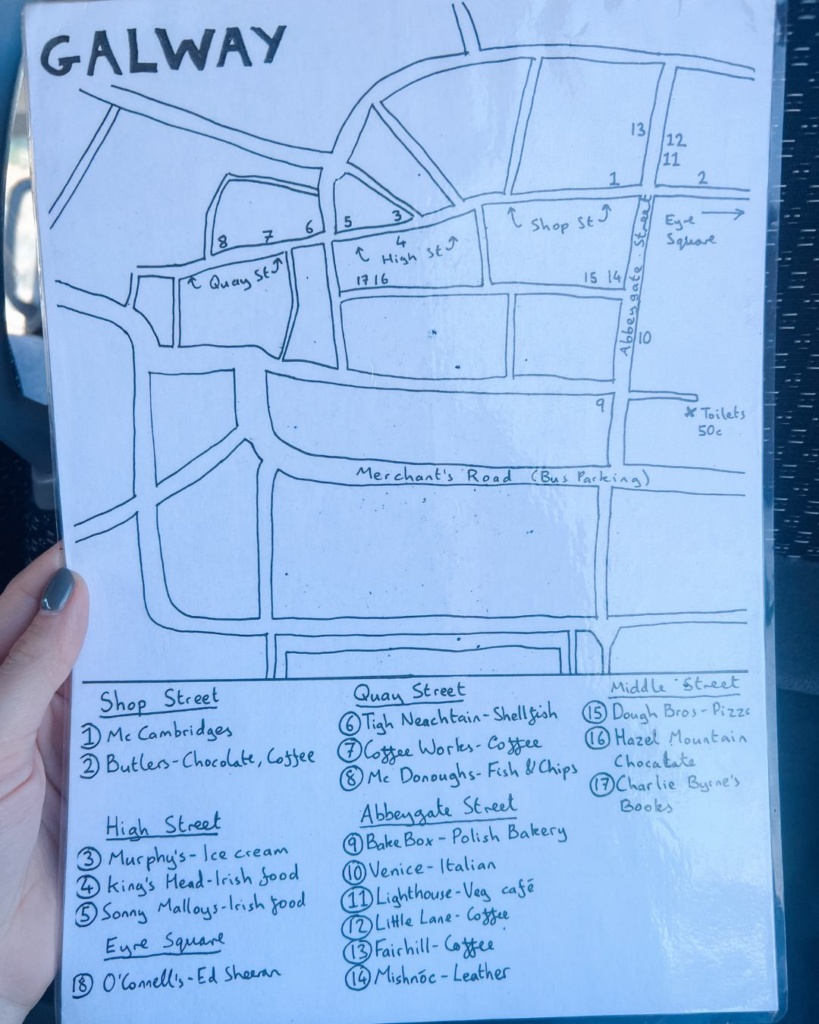 GALWAY
13
12
11
1
2
8
7
6
5
3
4
Shop St
Eyre
Square
Quay St
High St
17 16
15 14
Abbeygate Street
10
9
Toilets
50c
Merchant's Road (Bus Parking)
Shop Street
1 Mc Cambridges
2 Butlers-Chocolate, Coffee
High Street
3 Murphy's-Ice cream
4 King's Head-Irish food
5 Sonny Molloys-Irish food
Eyre Square
18 O'Connell's-Ed Sheeran
Quay Street
6 Tigh Neachtain-Shellfish
7 Coffee Works-Coffee
8 Mc Donoughs-Fish & Chips
Abbeygate Street
9 BakeBox-Polish Bakery
10 Venice-Italian
11 Lighthouse-Veg café
12 Little Lane-Coffee
13 Fairhill-Coffee
14 Mishnóc-Leather
Middle Street
15 Dough Bros-Pizza
16 Hazel Mountain
Chocolate
17 Charlie Byrne's
Books